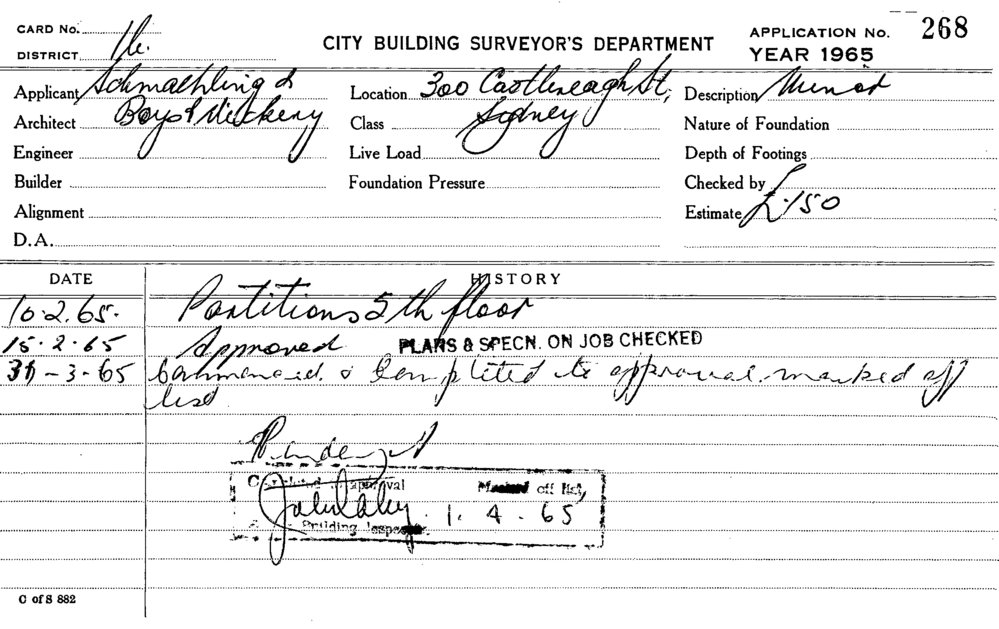 CARD No.
DISTRICT
CITY BUILDING SURVEYOR'S DEPARTMENT
APPLICATION No. 268
YEAR 1965
Applicant Schmaehling &
Location 300 Castlereagh St,
Description Minor
Architect Boyd Vickery
Class Sydney
Nature of Foundation
Engineer
Live Load
Depth of Footings
Builder
Foundation Pressure
Checked by
Alignment
Estimate £150
D.A.
DATE HISTORY
10.2.65. Partitions 5th floor
15.2.65 Approved PLANS & SPECN. ON JOB CHECKED
-3-65 Commenced & Completed to approval. marked off
list
Completed approval Marked off list,
1. 4. 65
Building Inspector.
C of S 882